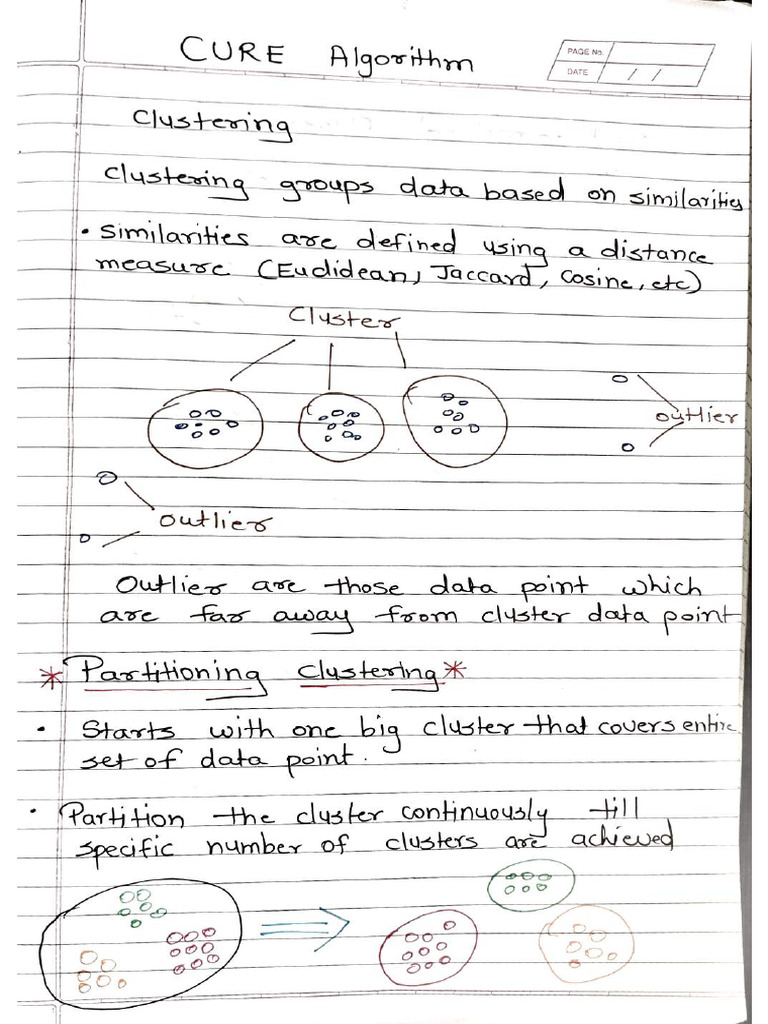 CURE Algorithm
PAGE No.
DATE / /
Clustering
Clustering groups data based on similarities
• Similarities are defined using a distance
measure (Euclidean, Jaccard, Cosine, etc)
Cluster
outlier
outlier
Outlier are those data point which
are far away from cluster data point
* Partitioning Clustering *
• Starts with one big cluster that covers entire
set of data point.
• Partition the cluster continuously till
specific number of clusters are achieved